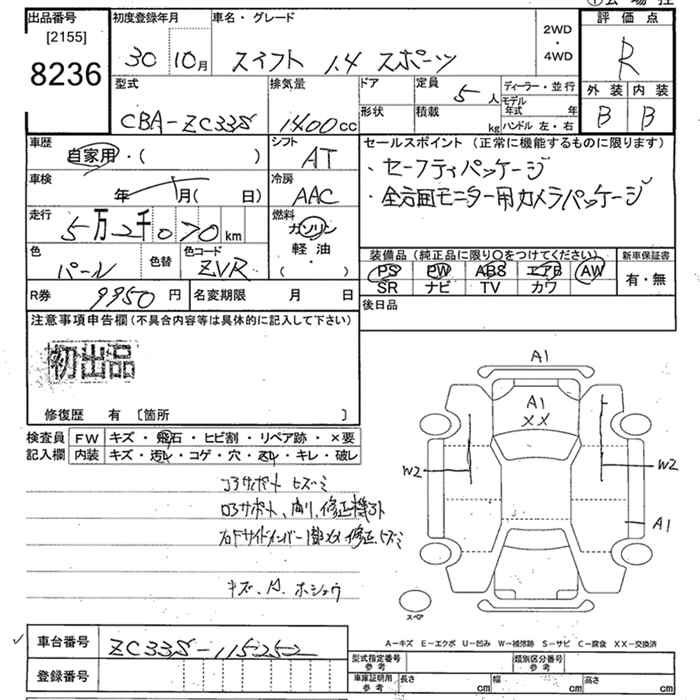 出品番号 初度登録年月 車名・グレード 2WD・4WD 評価点
[2155]
8236 30 10月 スイフト 1.4 スポーツ R
型式 排気量 ドア 定員 5人 ディーラー・並行 外装 内装
CBA-ZC33S 1400cc 形状 積載 kg モデル年式 年 B B
ハンドル 左・右
車歴 シフト セールスポイント (正常に機能するものに限ります)
自家用・( ) AT ・セーフティパッケージ
車検 冷房 ・全方囲モニター用カメラパッケージ
年 月( 日) AAC
走行 燃料
5万2千070km ガソリン
軽・油
・( )
色 色替 色コード 装備品(純正品に限り○をつけてください) 新車保証書
パール ZVR PS PW ABS エアB AW 有・無
SR ナビ TV カワ
R券 9950円 名変期限 月 日 後日品
注意事項申告欄(不具合内容等は具体的に記入して下さい)
初出品
修復歴 有 [箇所 ]
検査員 FW キズ・飛石・ヒビ割・リペア跡・×要
記入欄 内装 キズ・汚れ・コゲ・穴・スレ・キレ・破レ
A1
A1
XX
W2
W2
A1
コアサポート ヒズミ
キズ、A、ホショウ
スペア
A-キズ E-エクボ U-凹み W-補修跡 S-サビ C-腐食 XX-交換済
車台番号 ZC33S-115252
登録番号
型式指定番号 参考 類別区分番号 参考
車庫証明用 参考 長さ cm 幅 cm 高さ cm